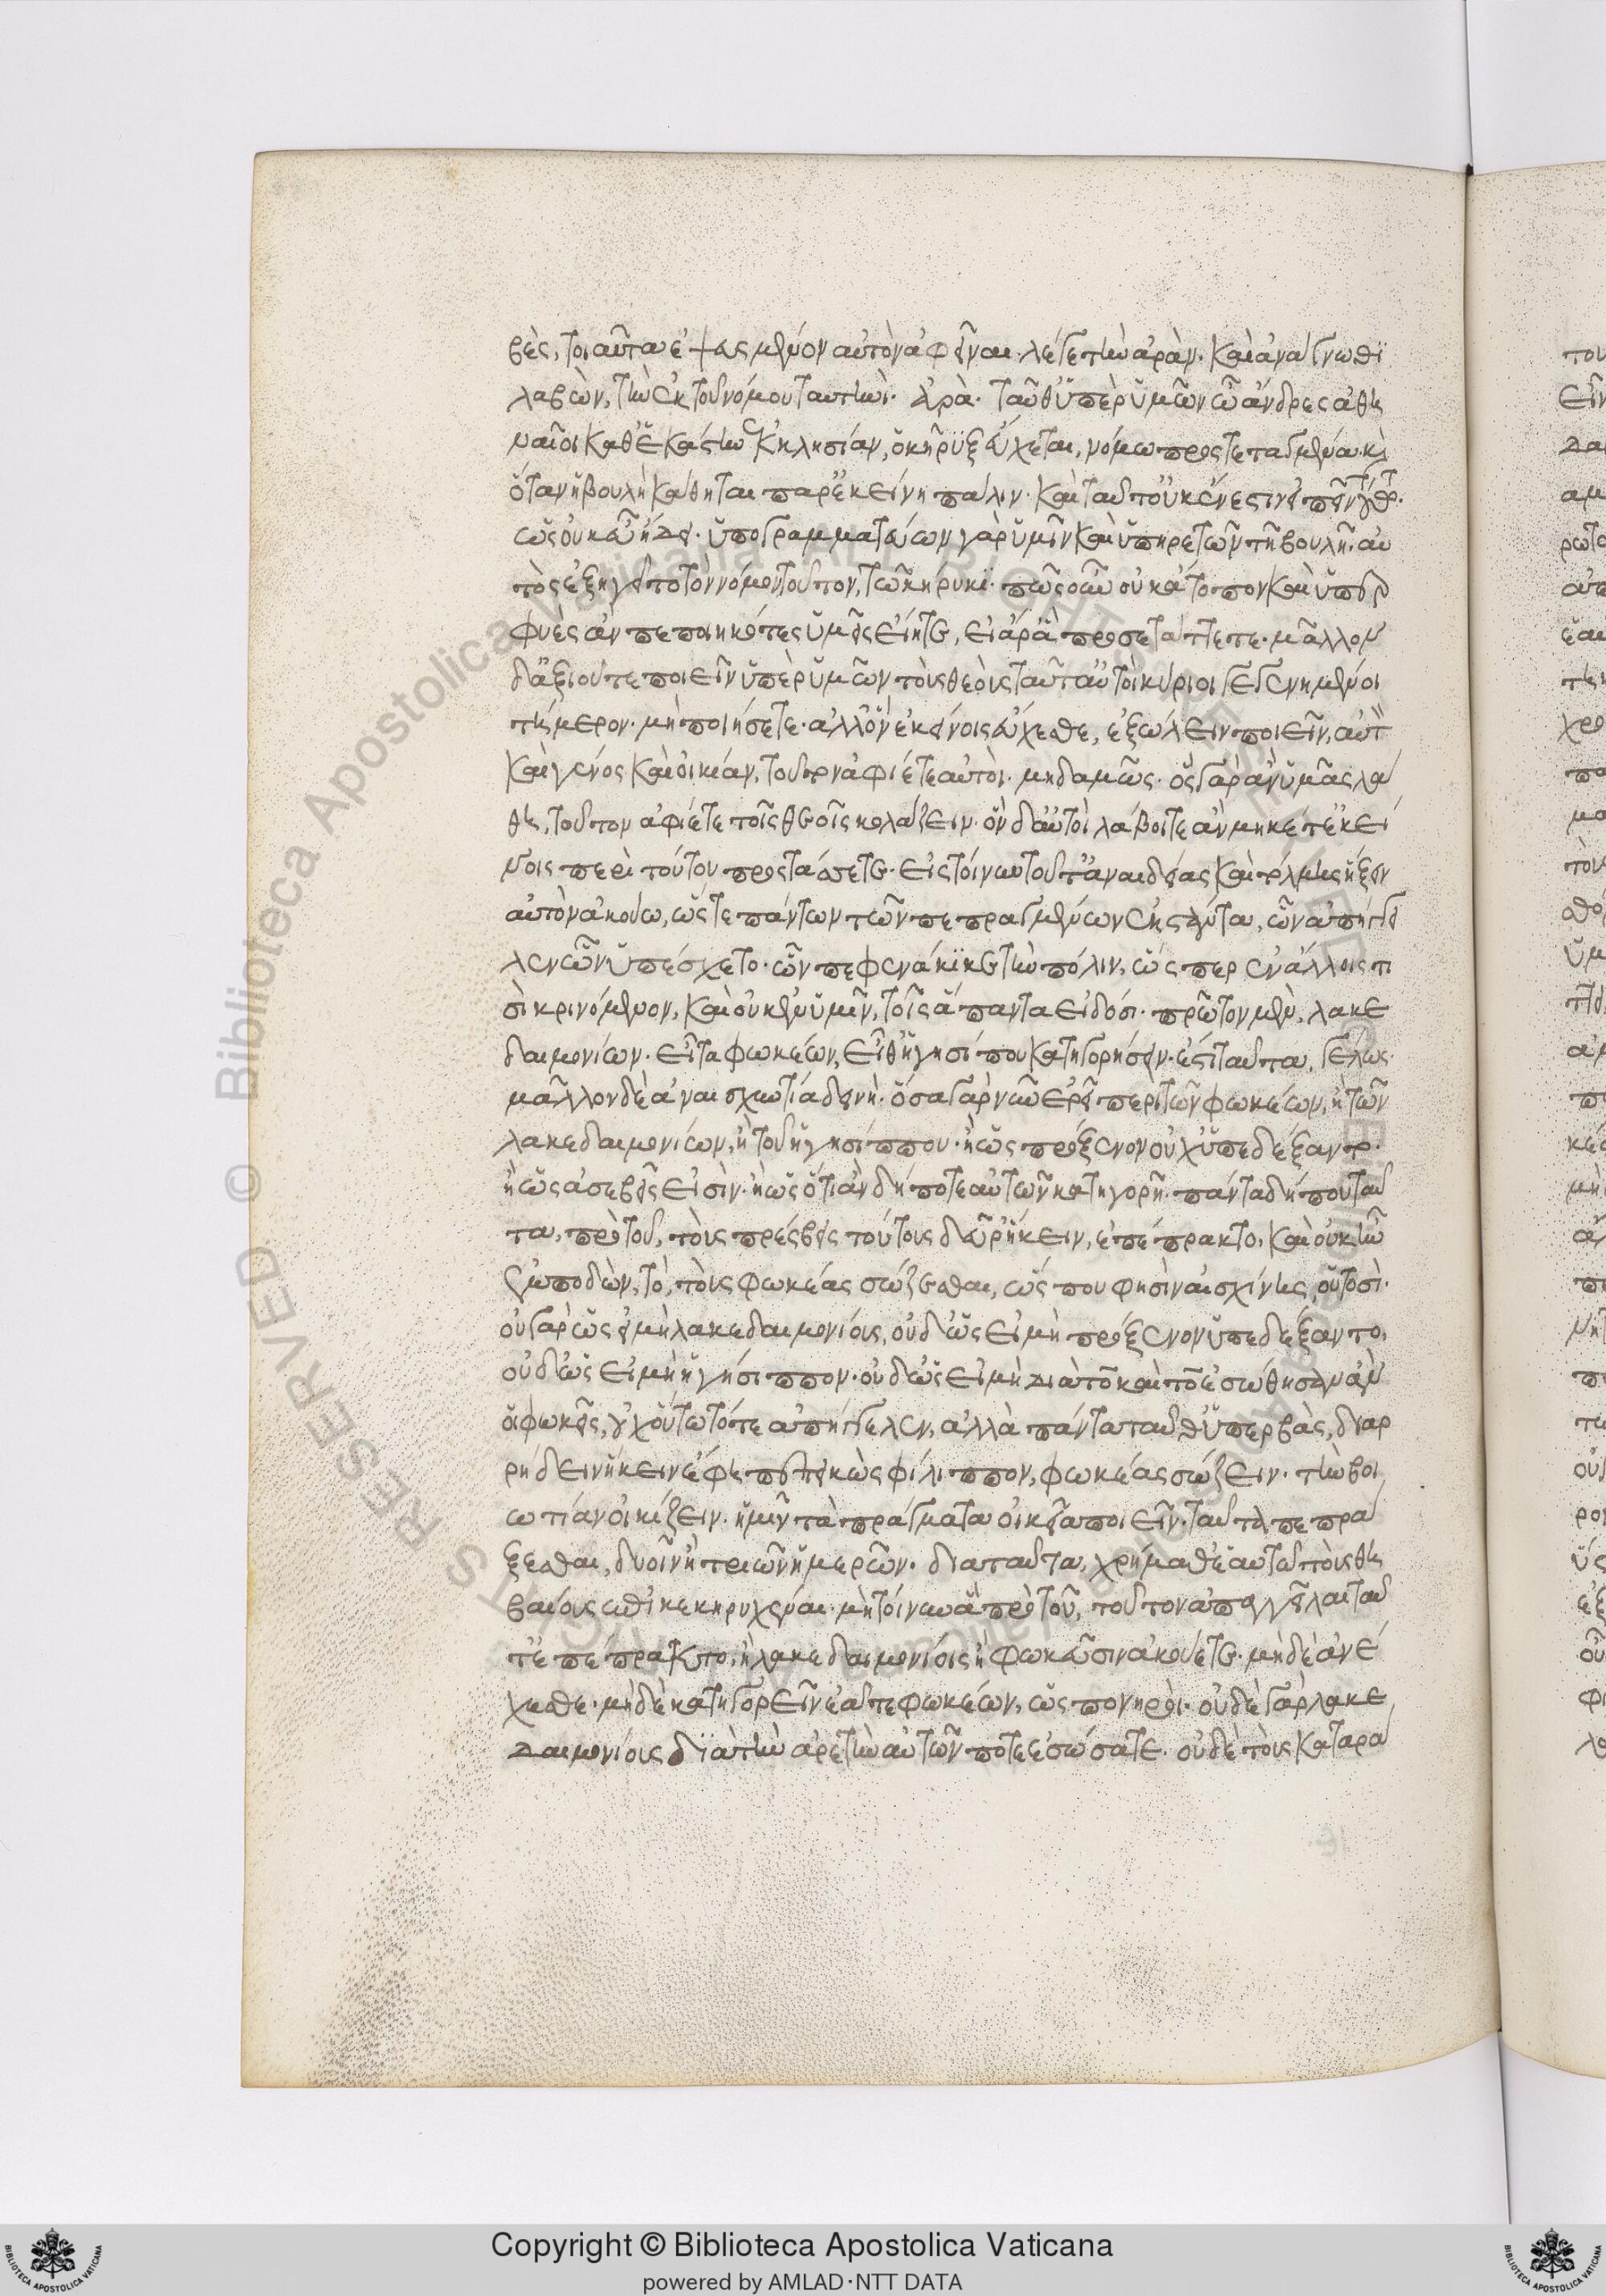 βὲς, τοιαῦτα ἐψευσμένον αὐτὸν ἀφεῖναι. λέγε τὴν ἀρὰν. καὶ ἀνάγνωθι
λαβὼν, τὴν ἐκ τοῦ νόμου ταυτηνί. Ἀρὰ. ταῦθ' ὑπὲρ ὑμῶν ὦ ἄνδρες ἀθη
ναῖοι καθ' ἑκάστην ἐκκλησίαν, ὁ κήρυξ εὔχεται, νόμω προστεταγμένα. καὶ
ὅταν ἡ βουλὴ κάθηται παρ' ἐκείνη πάλιν. καὶ ταῦτ' οὐκ ἔνεστιν εἰπεῖν
ὡς οὐκ εὖ ἤδει. ὑπογραμματεύων γὰρ ὑμῖν καὶ ὑπηρετῶν τῆ βουλῆ. αὐ
τὸς ἐξηγεῖτο τὸν νόμον τοῦτον, τῶ κήρυκι. πῶς οὖν οὐκ ἄτοπον καὶ ὑπερ
φυὲς ἂν πεποιηκότες ὑμεῖς εἴητε, εἰ ἄρ' ἃ προσετάττετε. μᾶλλον
δ' ἀξιοῦτε ποιεῖν ὑπὲρ ὑμῶν τοὺς θεοὺς ταῦτ' αὐτοὶ κύριοι γεγενημένοι
τήμερον. μὴ ποιήσετε. ἀλλ' ὃν ἐκείνοις εὔχεσθε, ἐξώλειν ποιεῖν, αὐτ
καὶ γένος καὶ οἰκίαν, τοῦτον ἀφιέτε αὐτοὶ. μηδαμῶς. ὃς γὰρ ἂν ὑμᾶς λά
θη, τοῦτον ἀφιέτε τοῖς θεοῖς κολάζειν. ὃν δ' αὐτοὶ λάβοιτε ἂν μηκέτ' ἐκεί
νοις περὶ τούτου προστάσσετε. εἰς τοίνυν τοῦτ' ἀναιδείας καὶ τόλμης ἥξειν
αὐτὸν ἀκούω, ὥστε πάντων τῶν πεπραγμένων ἐκστάντα, ὧν ἀπήγγει
λεν ὧν ὑπέσχετο. ὧν πεφενάκικε τὴν πόλιν, ὥσπερ ἐν ἄλλοις τι
σὶ κρινόμενον, καὶ οὐκ ἐν ὑμῖν, τοῖς ἅπαντα εἰδόσι. πρῶτον μὲν, λακε
δαιμονίων. εἶτα φωκέων, εἶθ' ἡγησίπου κατηγορήσειν. ἔστι ταῦτα, γέλως.
μᾶλλον δὲ ἀναισχυντία δεινὴ. ὅσα γὰρ νῦν ἐρεῖ περὶ τῶν φωκέων, ἢ τῶν
λακεδαιμονίων, ἢ τοῦ ἡγησίππου. ἢ ὡς πρόξενον οὐχ ὑπεδέξαντο.
ἢ ὡς ἀσεβεῖς εἰσὶν. ἢ ὡς ὅτι ἂν δή ποτε αὐτῶν κατηγορῆ. πάντα δήπου ταῦ
τα, πρὸ τοῦ, τοὺς πρέσβεις τούτους δεῦρ' ἥκειν, ἐπέπρακτο, καὶ οὐκ ἦν
ἐμποδὼν, τὸ, τοὺς φωκέας σώζεσθαι, ὥς που φησὶν αἰσχίνης, οὗτοσὶ.
οὐ γὰρ ὡς εἰ μὴ λακεδαιμονίοις, οὐδ' ὡς εἰ μὴ πρόξενον ὑπεδέξαντο,
οὐδ' ὡς εἰ μὴ ἡγήσιππον. οὐδ' ὡς εἰ μὴ διὰ τὸ καὶ τὸ ἐσώθησαν ἂν
οἱ φωκεῖς, οὐχ οὕτω τότε ἀπήγγελεν, ἀλλὰ πάντα ταῦθ' ὑπερβὰς, διαρ
ρήδειν ἥκειν ἔφη πεπεικὼς φίλιππον, φωκέας σώζειν. τὴν βοι
ωτίαν οἰκίζειν. ἡμῖν τὰ πράγματα οἰκεῖα ποιεῖν. ταῦτα πεπρά
ξεσθαι, δυοῖν ἢ τριῶν ἡμερῶν. διαταῦτα, χρήμαθ' ἑαυτῶ τοὺς θη
βαίους ἐπικεκηρυχέναι. μὴ τοίνυν ἃ πρὸ τοῦ, τοῦτον ἀπαγγεῖλαι ταῦ
τ' ἐπέπρακτο, ἢ λακεδαιμονίοις ἢ φωκεῦσιν ἀκούετε. μηδὲ ἀνέ
χεσθε. μηδὲ κατηγορεῖν ἐᾶτε φωκέων, ὡς πονηροὶ. οὐδὲ γὰρ λακε
δαιμονίους διὰ τὴν ἀρετὴν αὐτῶν ποτε ἐσώσατε. οὐδὲ τοὺς καταρά